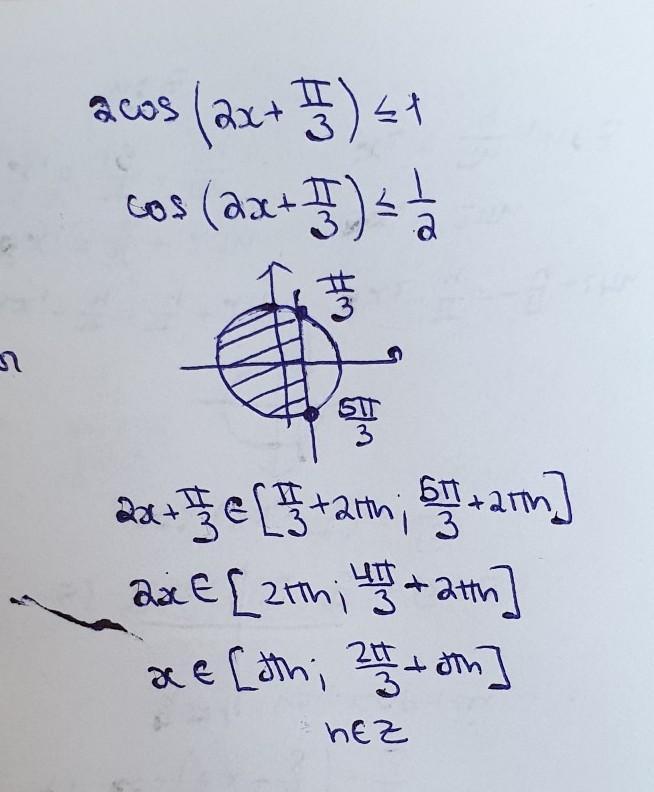 2cos(2x+π/3)≤1
cos(2x+π/3)≤1/2
π/3
5π/3
2x+π/3∈[π/3+2πn; 5π/3+2πn]
2x∈[2πn; 4π/3+2πn]
x∈[πn; 2π/3+πn]
n∈Z